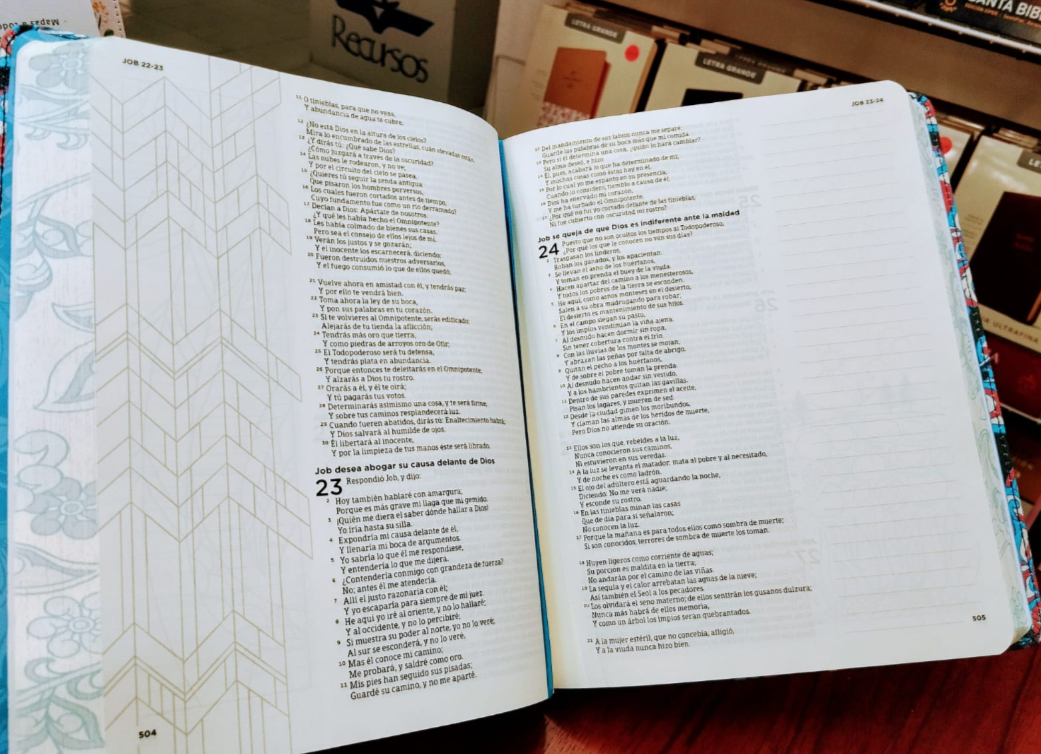 Mapas a
Recursos
LETRA GRANDE
LETRA GRANDE
SANTA BIB
ULTRAFINA
JOB 22-23
11 O tinieblas, para que no veas,
Y abundancia de agua te cubre.
12 ¿No está Dios en la altura de los cielos?
Mira lo encumbrado de las estrellas, cuán elevadas están.
13 ¿Y dirás tú: ¿Qué sabe Dios?
¿Cómo juzgará a través de la oscuridad?
14 Las nubes le rodearon, y no ve;
Y por el circuito del cielo se pasea.
15 ¿Quieres tú seguir la senda antigua
Que pisaron los hombres perversos,
16 Los cuales fueron cortados antes de tiempo,
Cuyo fundamento fue como un río derramado?
17 Decían a Dios: Apártate de nosotros.
¿Y qué les había hecho el Omnipotente?
18 Les había colmado de bienes sus casas.
Pero sea el consejo de ellos lejos de mí.
19 Verán los justos y se gozarán;
Y el inocente los escarnecerá, diciendo:
20 Fueron destruidos nuestros adversarios,
Y el fuego consumió lo que de ellos quedó.
21 Vuelve ahora en amistad con él, y tendrás paz;
Y por ello te vendrá bien.
22 Toma ahora la ley de su boca,
Y pon sus palabras en tu corazón.
23 Si te volvieres al Omnipotente, serás edificado;
Alejarás de tu tienda la aflicción;
24 Tendrás más oro que tierra,
Y como piedras de arroyos oro de Ofir;
25 El Todopoderoso será tu defensa,
Y tendrás plata en abundancia.
26 Porque entonces te deleitarás en el Omnipotente,
Y alzarás a Dios tu rostro.
27 Orarás a él, y él te oirá;
Y tú pagarás tus votos.
28 Determinarás asimismo una cosa, y te será firme,
Y sobre tus caminos resplandecerá luz.
29 Cuando fueren abatidos, dirás tú: Enaltecimiento habrá;
Y Dios salvará al humilde de ojos.
30 Él libertará al inocente,
Y por la limpieza de tus manos éste será librado.
Job desea abogar su causa delante de Dios
23 Respondió Job, y dijo:
2 Hoy también hablaré con amargura;
Porque es más grave mi llaga que mi gemido.
3 ¡Quién me diera el saber dónde hallar a Dios!
Yo iría hasta su silla.
4 Expondría mi causa delante de él,
Y llenaría mi boca de argumentos.
5 Yo sabría lo que él me respondiese,
Y entendería lo que me dijera.
6 ¿Contendería conmigo con grandeza de fuerza?
No; antes él me atendería.
7 Allí el justo razonaría con él;
Y yo escaparía para siempre de mi juez.
8 He aquí yo iré al oriente, y no lo hallaré;
Y al occidente, y no lo percibiré;
9 Si muestra su poder al norte, yo no lo veré;
Al sur se esconderá, y no lo veré.
10 Mas él conoce mi camino;
Me probará, y saldré como oro.
11 Mis pies han seguido sus pisadas;
Guardé su camino, y no me aparté.
504
JOB 23-24
12 Del mandamiento de sus labios nunca me separé;
Guardé las palabras de su boca más que mi comida.
13 Pero si él determina una cosa, ¿quién lo hará cambiar?
Su alma deseó, e hizo.
14 Él, pues, acabará lo que ha determinado de mí;
Y muchas cosas como éstas hay en él.
15 Por lo cual yo me espanto en su presencia;
Cuando lo considero, tiemblo a causa de él.
16 Dios ha enervado mi corazón,
Y me ha turbado el Omnipotente.
17 ¿Por qué no fui yo cortado delante de las tinieblas,
Ni fue cubierto con oscuridad mi rostro?
Job se queja de que Dios es indiferente ante la maldad
24 Puesto que no son ocultos los tiempos al Todopoderoso,
¿Por qué los que le conocen no ven sus días?
2 Traspasan los linderos,
Roban los ganados, y los apacientan.
3 Se llevan el asno de los huérfanos,
Y toman en prenda el buey de la viuda.
4 Hacen apartar del camino a los menesterosos,
Y todos los pobres de la tierra se esconden.
5 He aquí, como asnos monteses en el desierto,
Salen a su obra madrugando para robar;
El desierto es mantenimiento de sus hijos.
6 En el campo siegan su pasto,
Y los impíos vendimian la viña ajena.
7 Al desnudo hacen dormir sin ropa,
Sin tener cobertura contra el frío.
8 Con las lluvias de los montes se mojan,
Y abrazan las peñas por falta de abrigo.
9 Quitan el pecho a los huérfanos,
Y de sobre el pobre toman la prenda.
10 Al desnudo hacen andar sin vestido,
Y a los hambrientos quitan las gavillas.
11 Dentro de sus paredes exprimen el aceite,
Pisan los lagares, y mueren de sed.
12 Desde la ciudad gimen los moribundos,
Y claman las almas de los heridos de muerte,
Pero Dios no atiende su oración.
13 Ellos son los que, rebeldes a la luz,
Nunca conocieron sus caminos,
Ni estuvieron en sus veredas.
14 A la luz se levanta el matador; mata al pobre y al necesitado,
Y de noche es como ladrón.
15 El ojo del adúltero está aguardando la noche,
Diciendo: No me verá nadie;
Y esconde su rostro.
16 En las tinieblas minan las casas
Que de día para sí señalaron;
No conocen la luz.
17 Porque la mañana es para todos ellos como sombra de muerte;
Si son conocidos, terrores de sombra de muerte los toman.
18 Huyen ligeros como corriente de aguas;
Su porción es maldita en la tierra;
No andarán por el camino de las viñas.
19 La sequía y el calor arrebatan las aguas de la nieve;
Así también el Seol a los pecadores.
20 Los olvidará el seno materno; de ellos sentirán los gusanos dulzura;
Nunca más habrá de ellos memoria,
Y como un árbol los impíos serán quebrantados.
21 A la mujer estéril, que no concebía, afligió,
Y a la viuda nunca hizo bien.
505